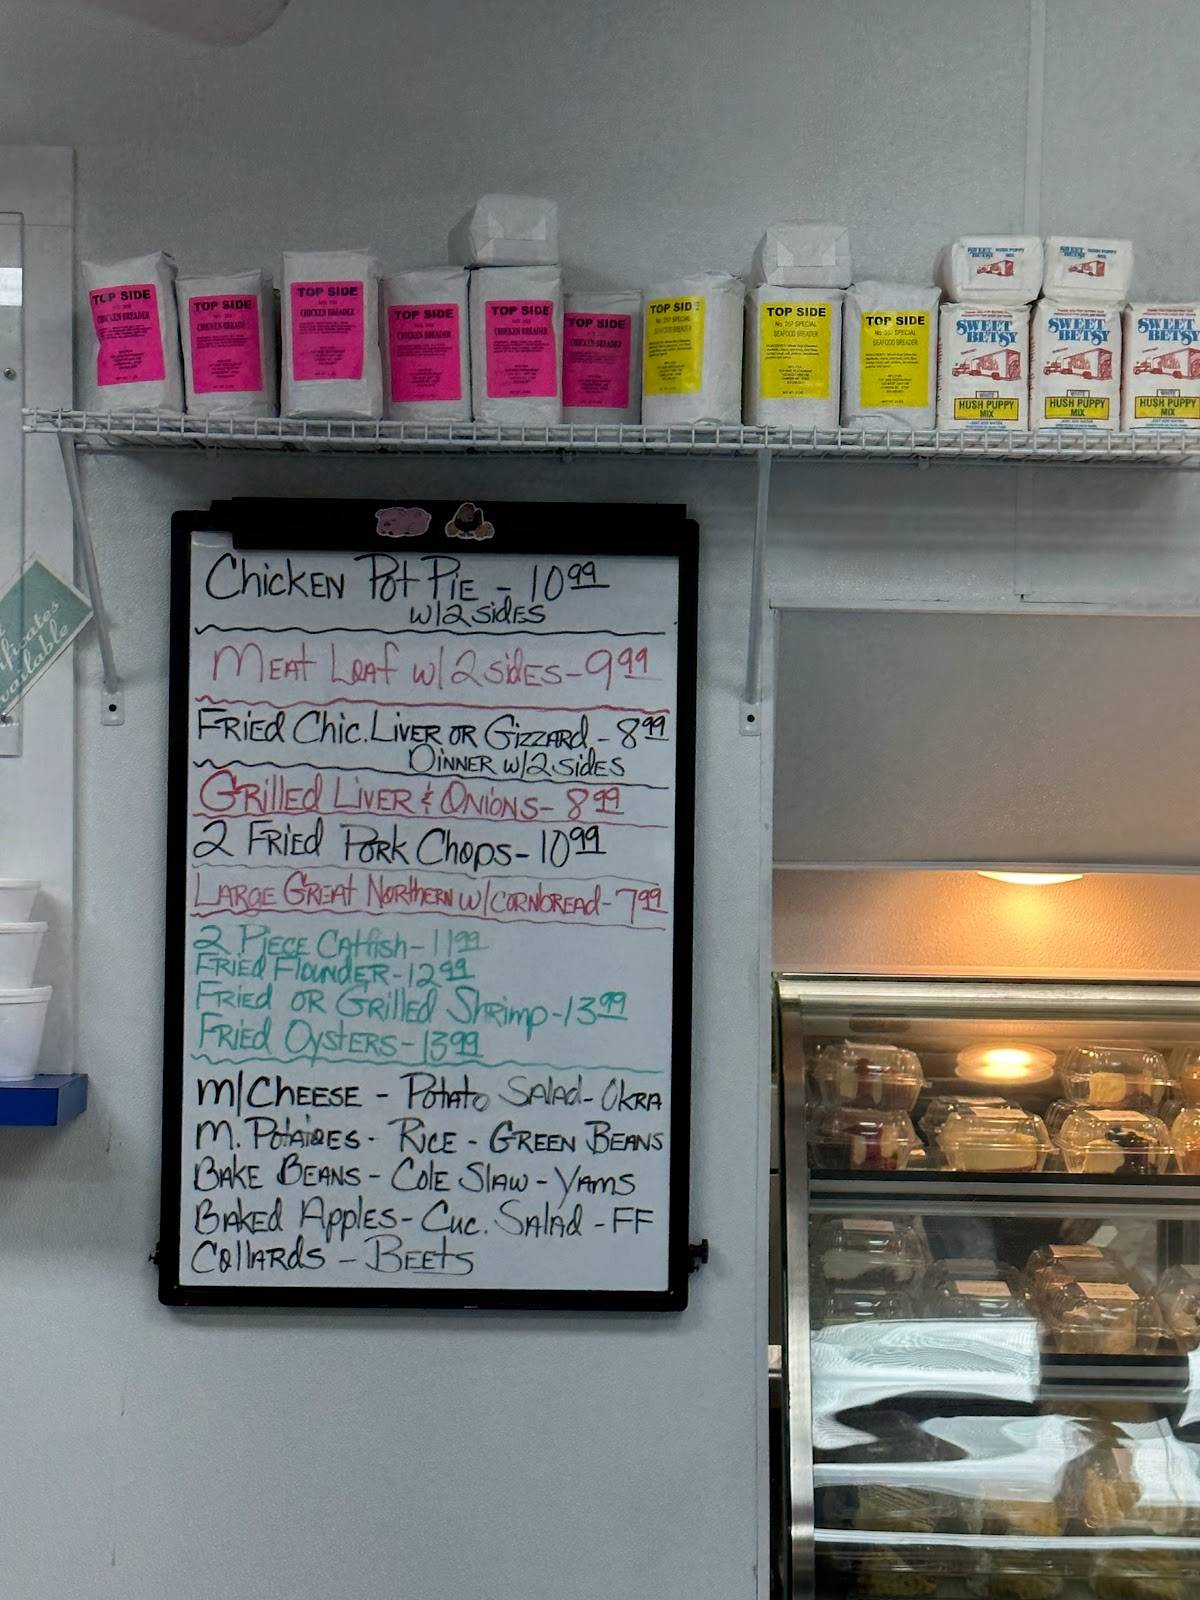 TOP SIDE
CHICKEN BREADER
TOP SIDE
CHICKEN BREADER
TOP SIDE
CHICKEN BREADER
TOP SIDE
CHICKEN BREADER
TOP SIDE
CHICKEN BREADER
TOP SIDE
CHICKEN BREADER
TOP SIDE
No. 207 SPECIAL
SEAFOOD BREADER
TOP SIDE
No. 207 SPECIAL
SEAFOOD BREADER
TOP SIDE
No. 207 SPECIAL
SEAFOOD BREADER
SWEET BETSY
HUSH PUPPY MIX
SWEET BETSY
HUSH PUPPY MIX
SWEET
BETSY
WHITE
HUSH PUPPY
MIX
SWEET
BETSY
WHITE
HUSH PUPPY
MIX
SWEET
BETSY
WHITE
HUSH PUPPY
MIX
Chicken Pot Pie - 10.99
w/2 sides
Meat Loaf w/2 sides - 9.99
Fried Chic. Liver or Gizzard - 8.99
Dinner w/2 sides
Grilled Liver & Onions - 8.99
2 Fried Pork Chops - 10.99
Large Great Northern w/cornbread - 7.99
2 Piece Catfish - 11.99
Fried Flounder - 12.99
Fried or Grilled Shrimp - 13.99
Fried Oysters - 13.99
M/CHEESE - Potato Salad - Okra
M. Potatoes - Rice - Green Beans
Bake Beans - Cole Slaw - Yams
Baked Apples - Cuc. Salad - FF
Collards - Beets